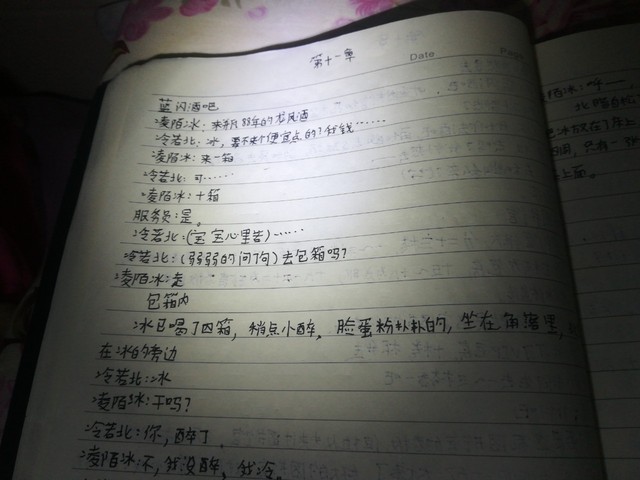 第十一章
Date
蓝闪酒吧
凌陌冰：来瓶88年的龙凤酒
冷若北：冰，要不来个便宜点的？我钱……
凌陌冰：来一箱
冷若北：可……
凌陌冰：十箱
服务员：是。
冷若北：(宝宝心里苦)……
冷若北：(弱弱的问了句)去包箱吗？
凌陌冰：走
包箱内
冰已喝了四箱，稍点小醉，脸蛋粉扑扑的，坐在角落里，
在冰的旁边
冷若北：冰
凌陌冰：干吗？
冷若北：你，醉了
凌陌冰：不，我没醉，我冷。
陌冰：呼——
上面。